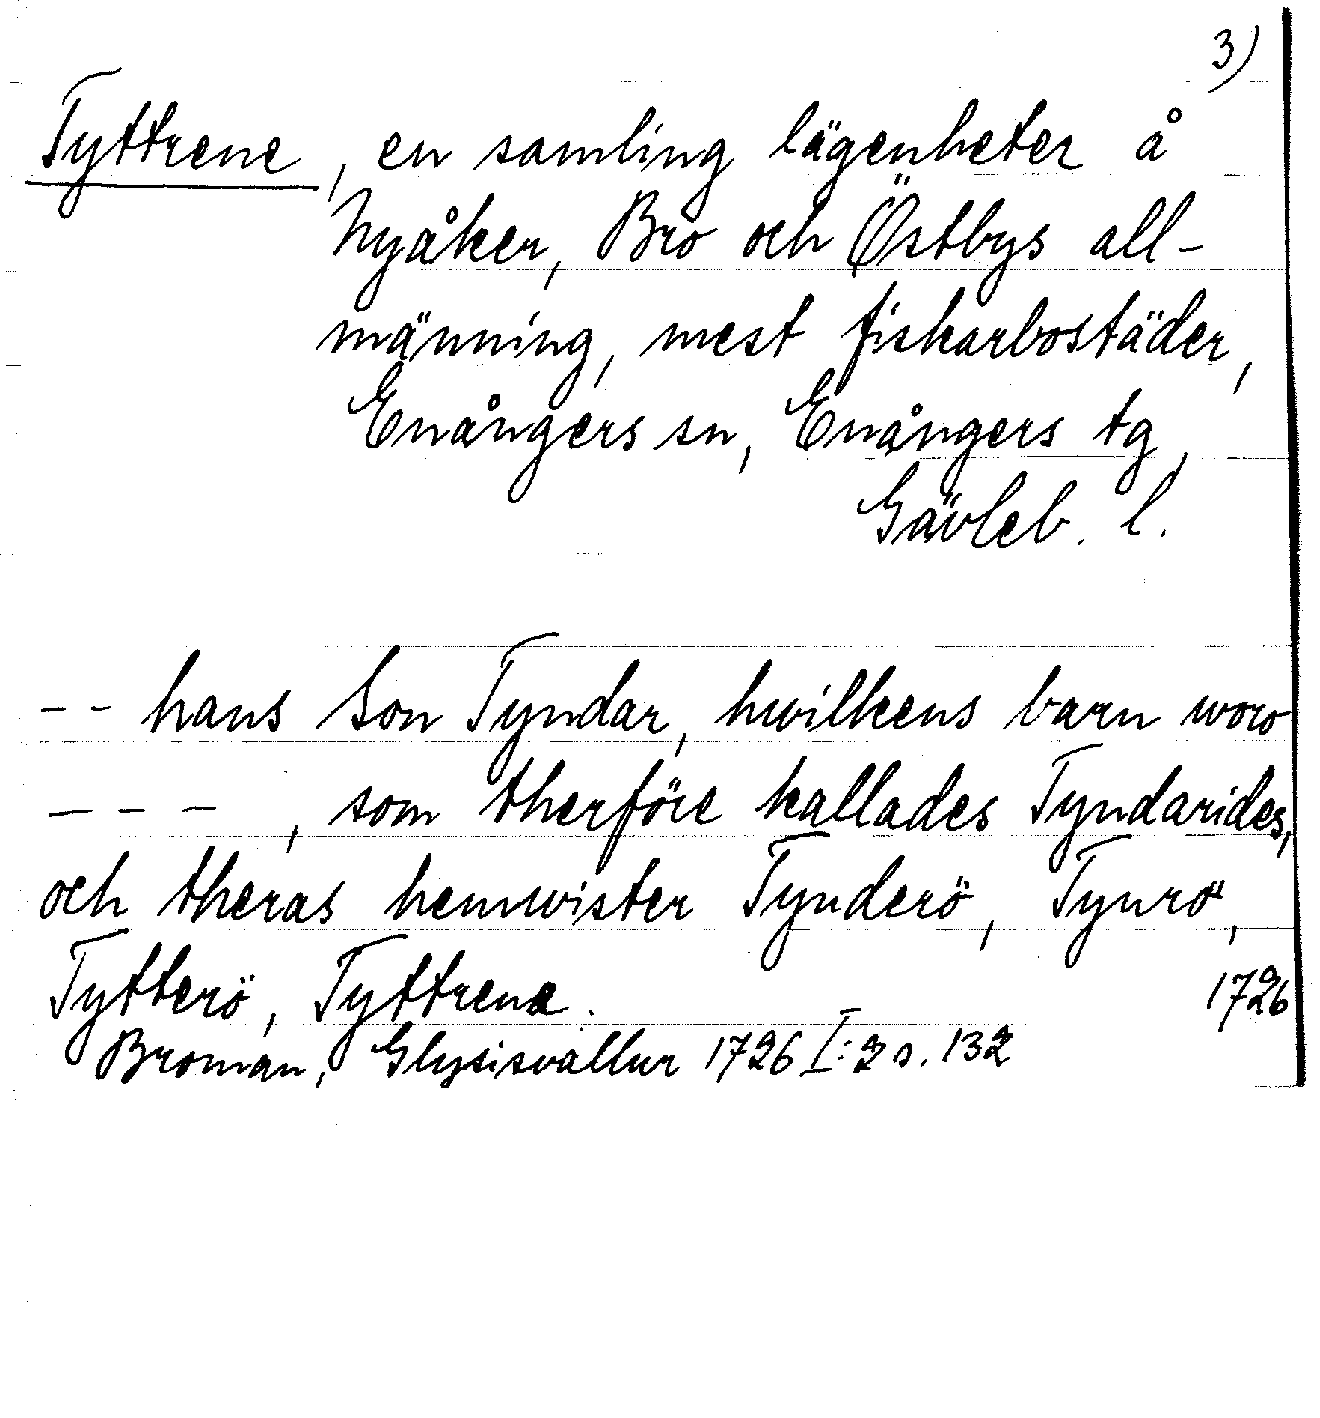 3)
Tyttrene, en samling lägenheter å
Nyåker, Bro och Östbys all-
männing, mest fiskarbostäder,
Enångers sn, Enångers tg,
Gävleb. l.
-- hans Son Tyndar, hwilkens barn woro
---, som therföre kallades Tyndarides,
och theras hemwister Tynderö, Tynrö,
Tytterö, Tyttrene. 1726
Broman, Glysisvallur 1726 I:2 s. 132